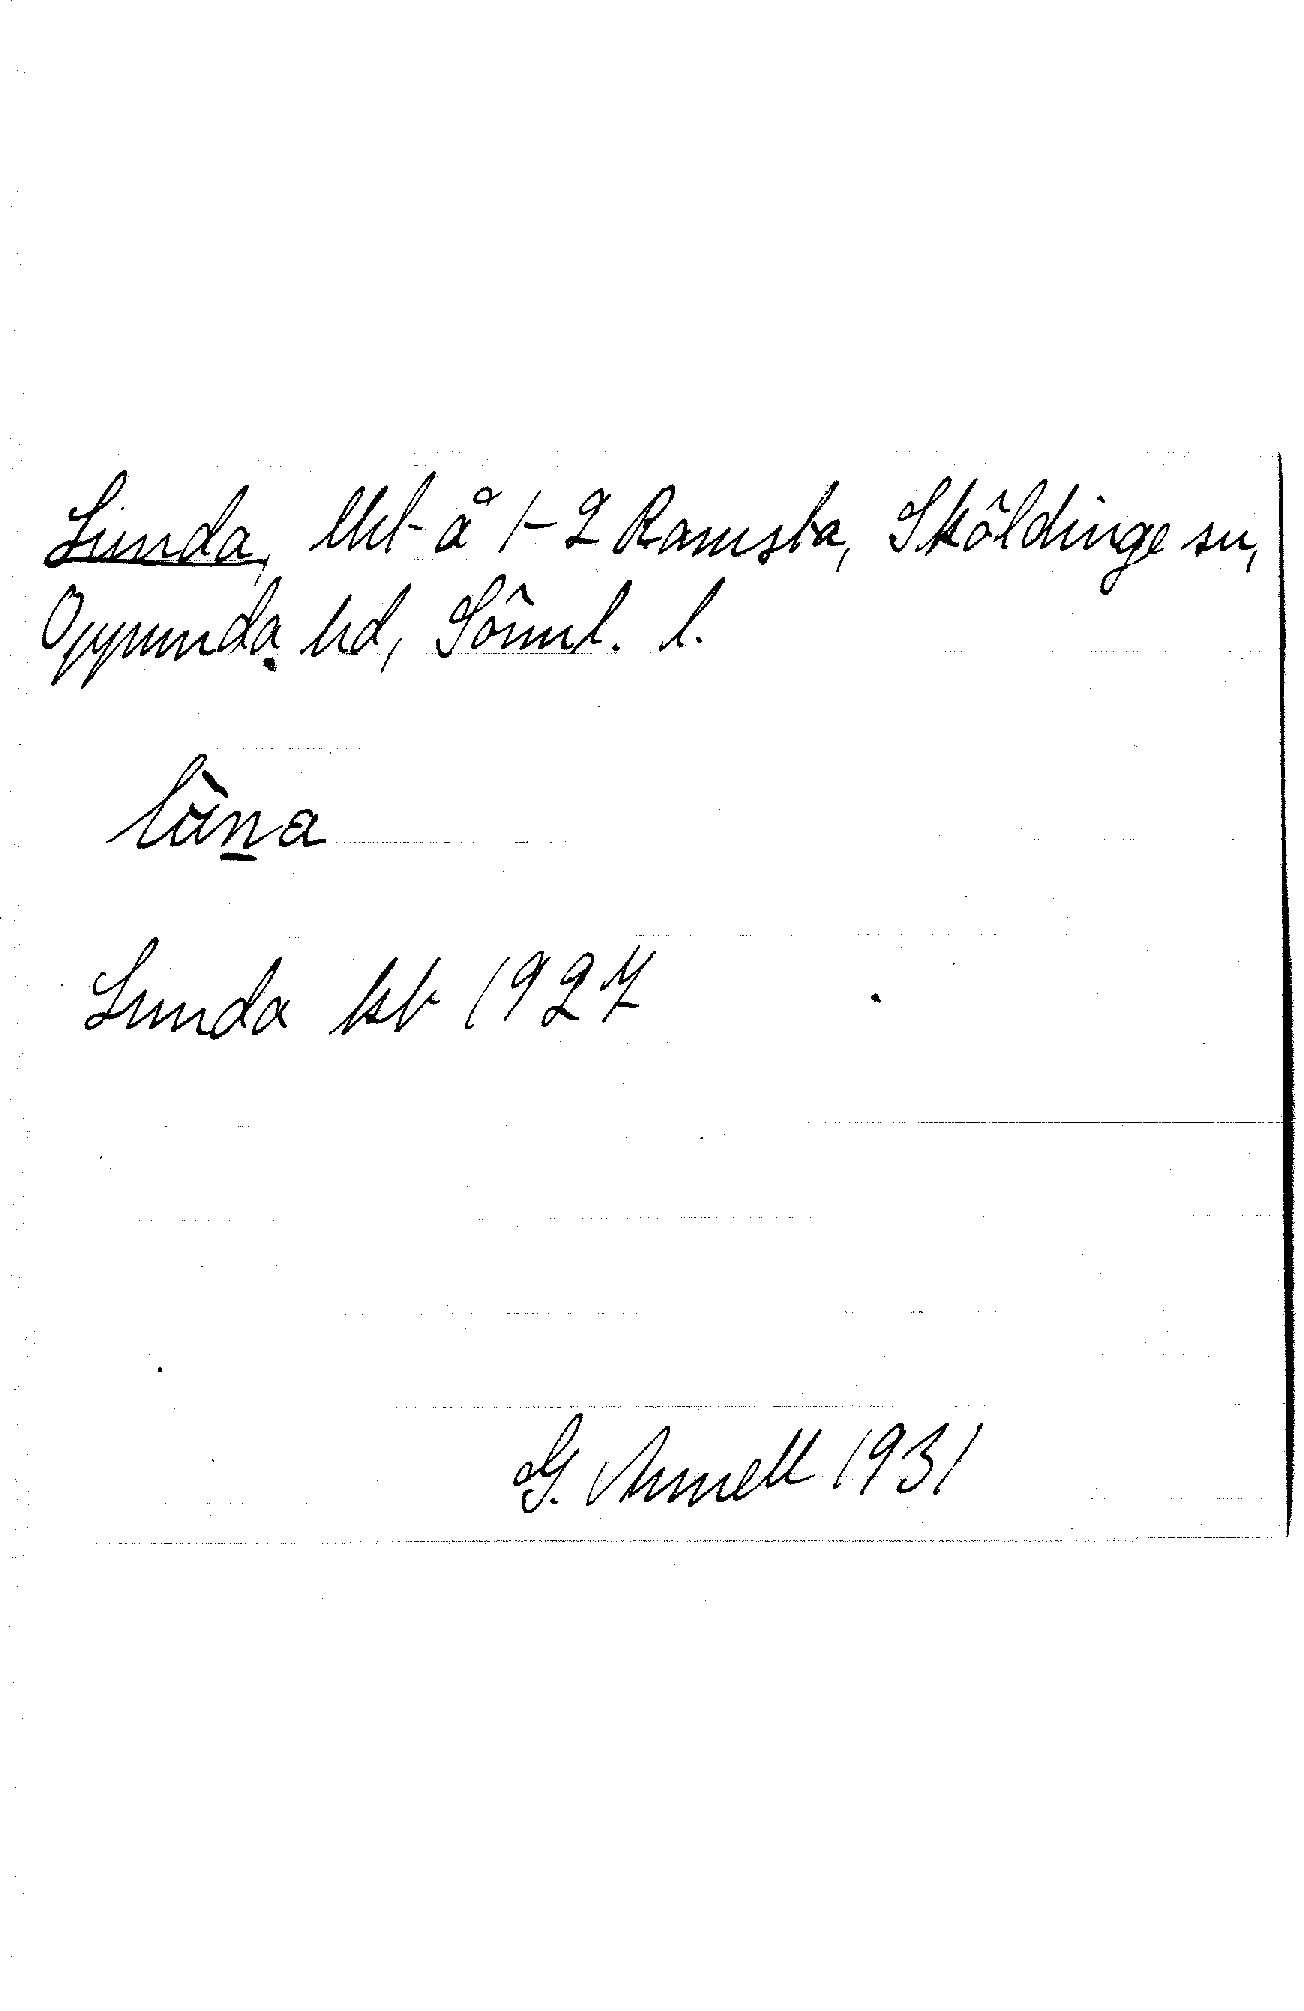 Lunda, lht å 1-2 Ramsta, Sköldinge sn,
Oppunda hd, Söml. l.
lùn̲a
Lunda kb 1927
G. Annell 1931